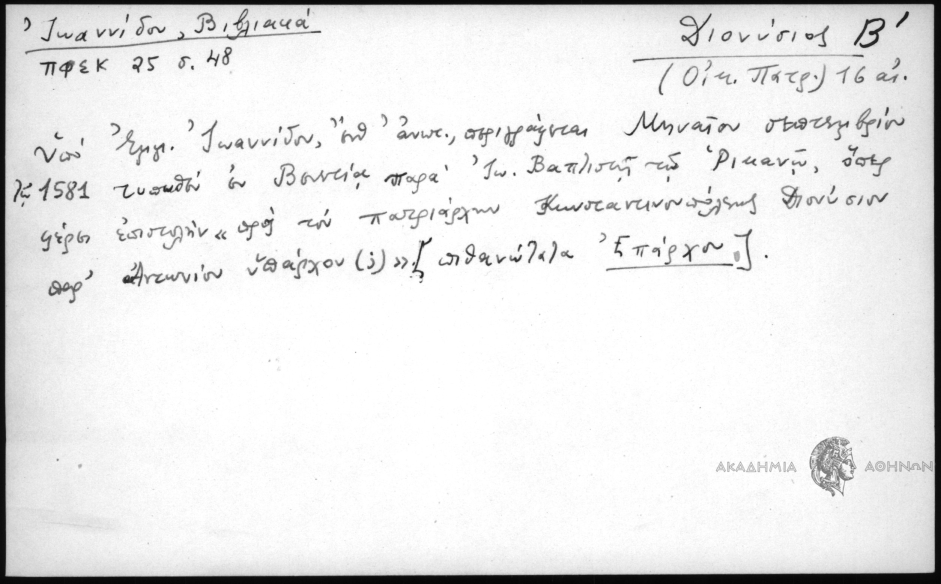 Ἰωαννίδου, Βιβλιακά
ΠΦΣΚ 25 σ. 48
Διονύσιος Β'
(Οἰκ. Πατρ.) 16 αἰ.
Ὑπὸ Ἐμμ. Ἰωαννίδου, ἔνθ' ἀνωτ., περιγράφεται Μηναῖον Σεπτεμβρίου
1581 τυπωθὲν ἐν Βενετίᾳ παρὰ Ἰω. Βαπτιστῇ τῷ Ῥικανῷ, ὅπερ
φέρει ἐπιστολὴν « πρὸς τὸν πατριάρχην Κωνσταντινουπόλεως Διονύσιον
παρ' Ἀντωνίου ὑπάρχου (;) » [ πιθανώτατα Ἐπάρχου ].
ΑΚΑΔΗΜΙΑ ΑΘΗΝΩΝ